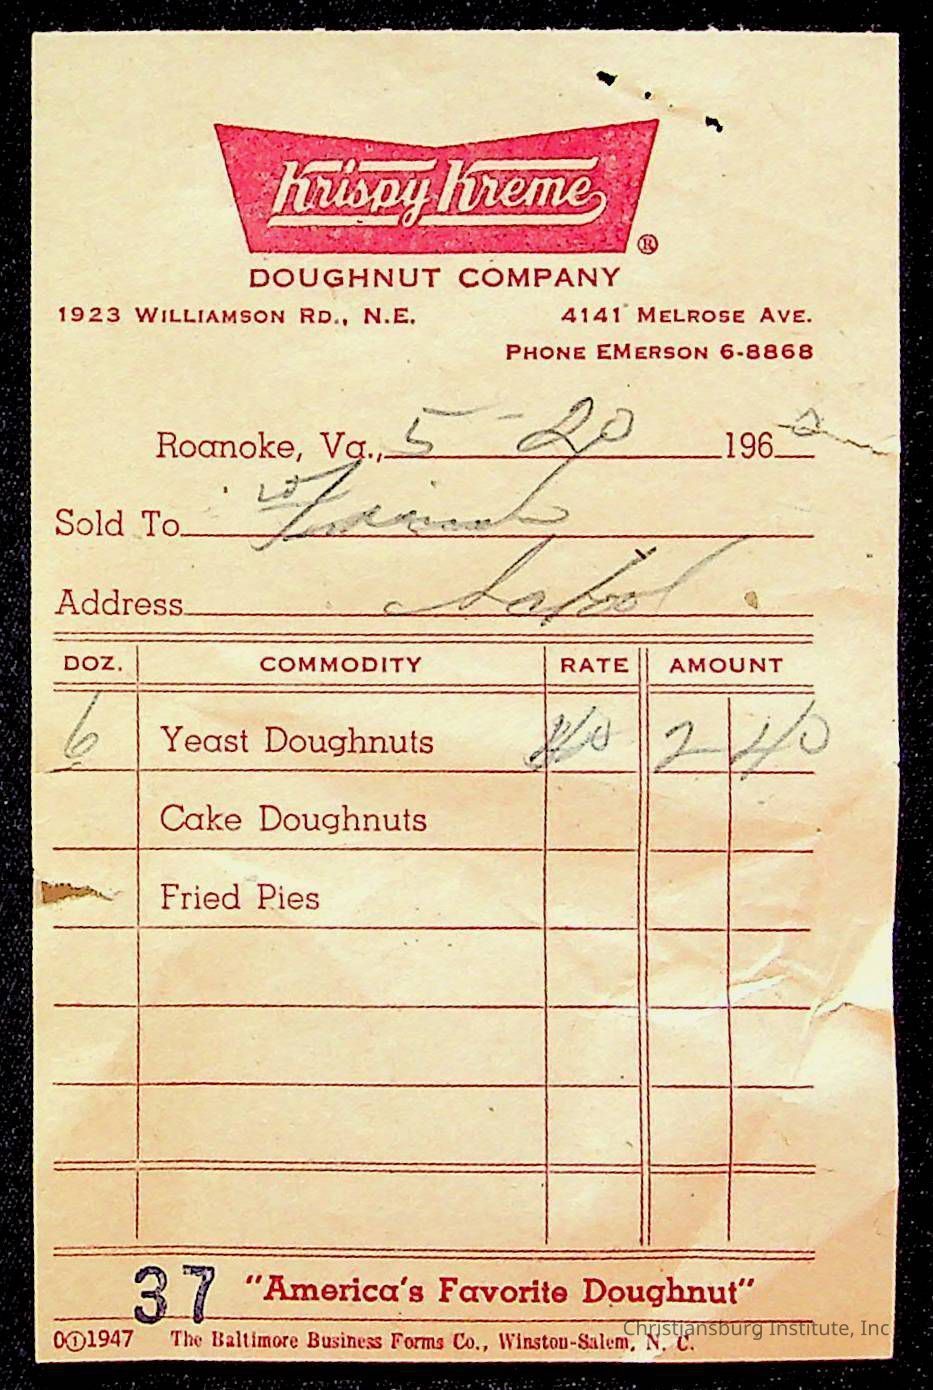 Krispy Kreme ®
DOUGHNUT COMPANY
1923 WILLIAMSON RD., N.E. 4141 MELROSE AVE.
PHONE EMERSON 6-8868
Roanoke, Va., 5-20 196
Sold To
Address
DOZ. COMMODITY RATE AMOUNT
6 Yeast Doughnuts 40 2 40
Cake Doughnuts
Fried Pies
37 "America's Favorite Doughnut"
O①1947 The Baltimore Business Forms Co., Winston-Salem, N. C.
Christiansburg Institute, Inc